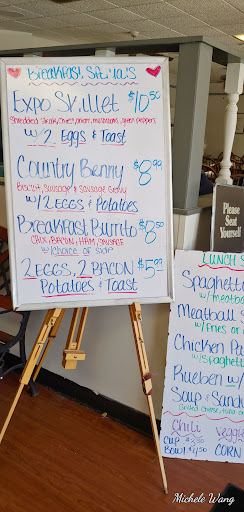 Breakfast Specials
Expo Skillet $10.50
Shredded Steak, Sweet onion, mushrooms, green peppers
w/ 2 Eggs & Toast
Country Benny $8.99
Biscuit, Sausage & Sausage Gravy
w/ 2 EGGS & Potatoes
Breakfast Burrito $8.50
CHIX, BACON, HAM, SAUSAGE
w/ Choice of side
2 EGGS, 2 BACON $5.99
Potatoes & Toast
Please
Seat
Yourself
LUNCH S
Spaghett
w/ meatba
Meatball S
w/ Fries or
Chicken Pa
w/ Spaghett
Rueben w/ F
Soup & Sand
Grilled cheese, tuna o
Chili
Veggie
CUP $3.50
BOWL $4.50
CORN
Michele Wang